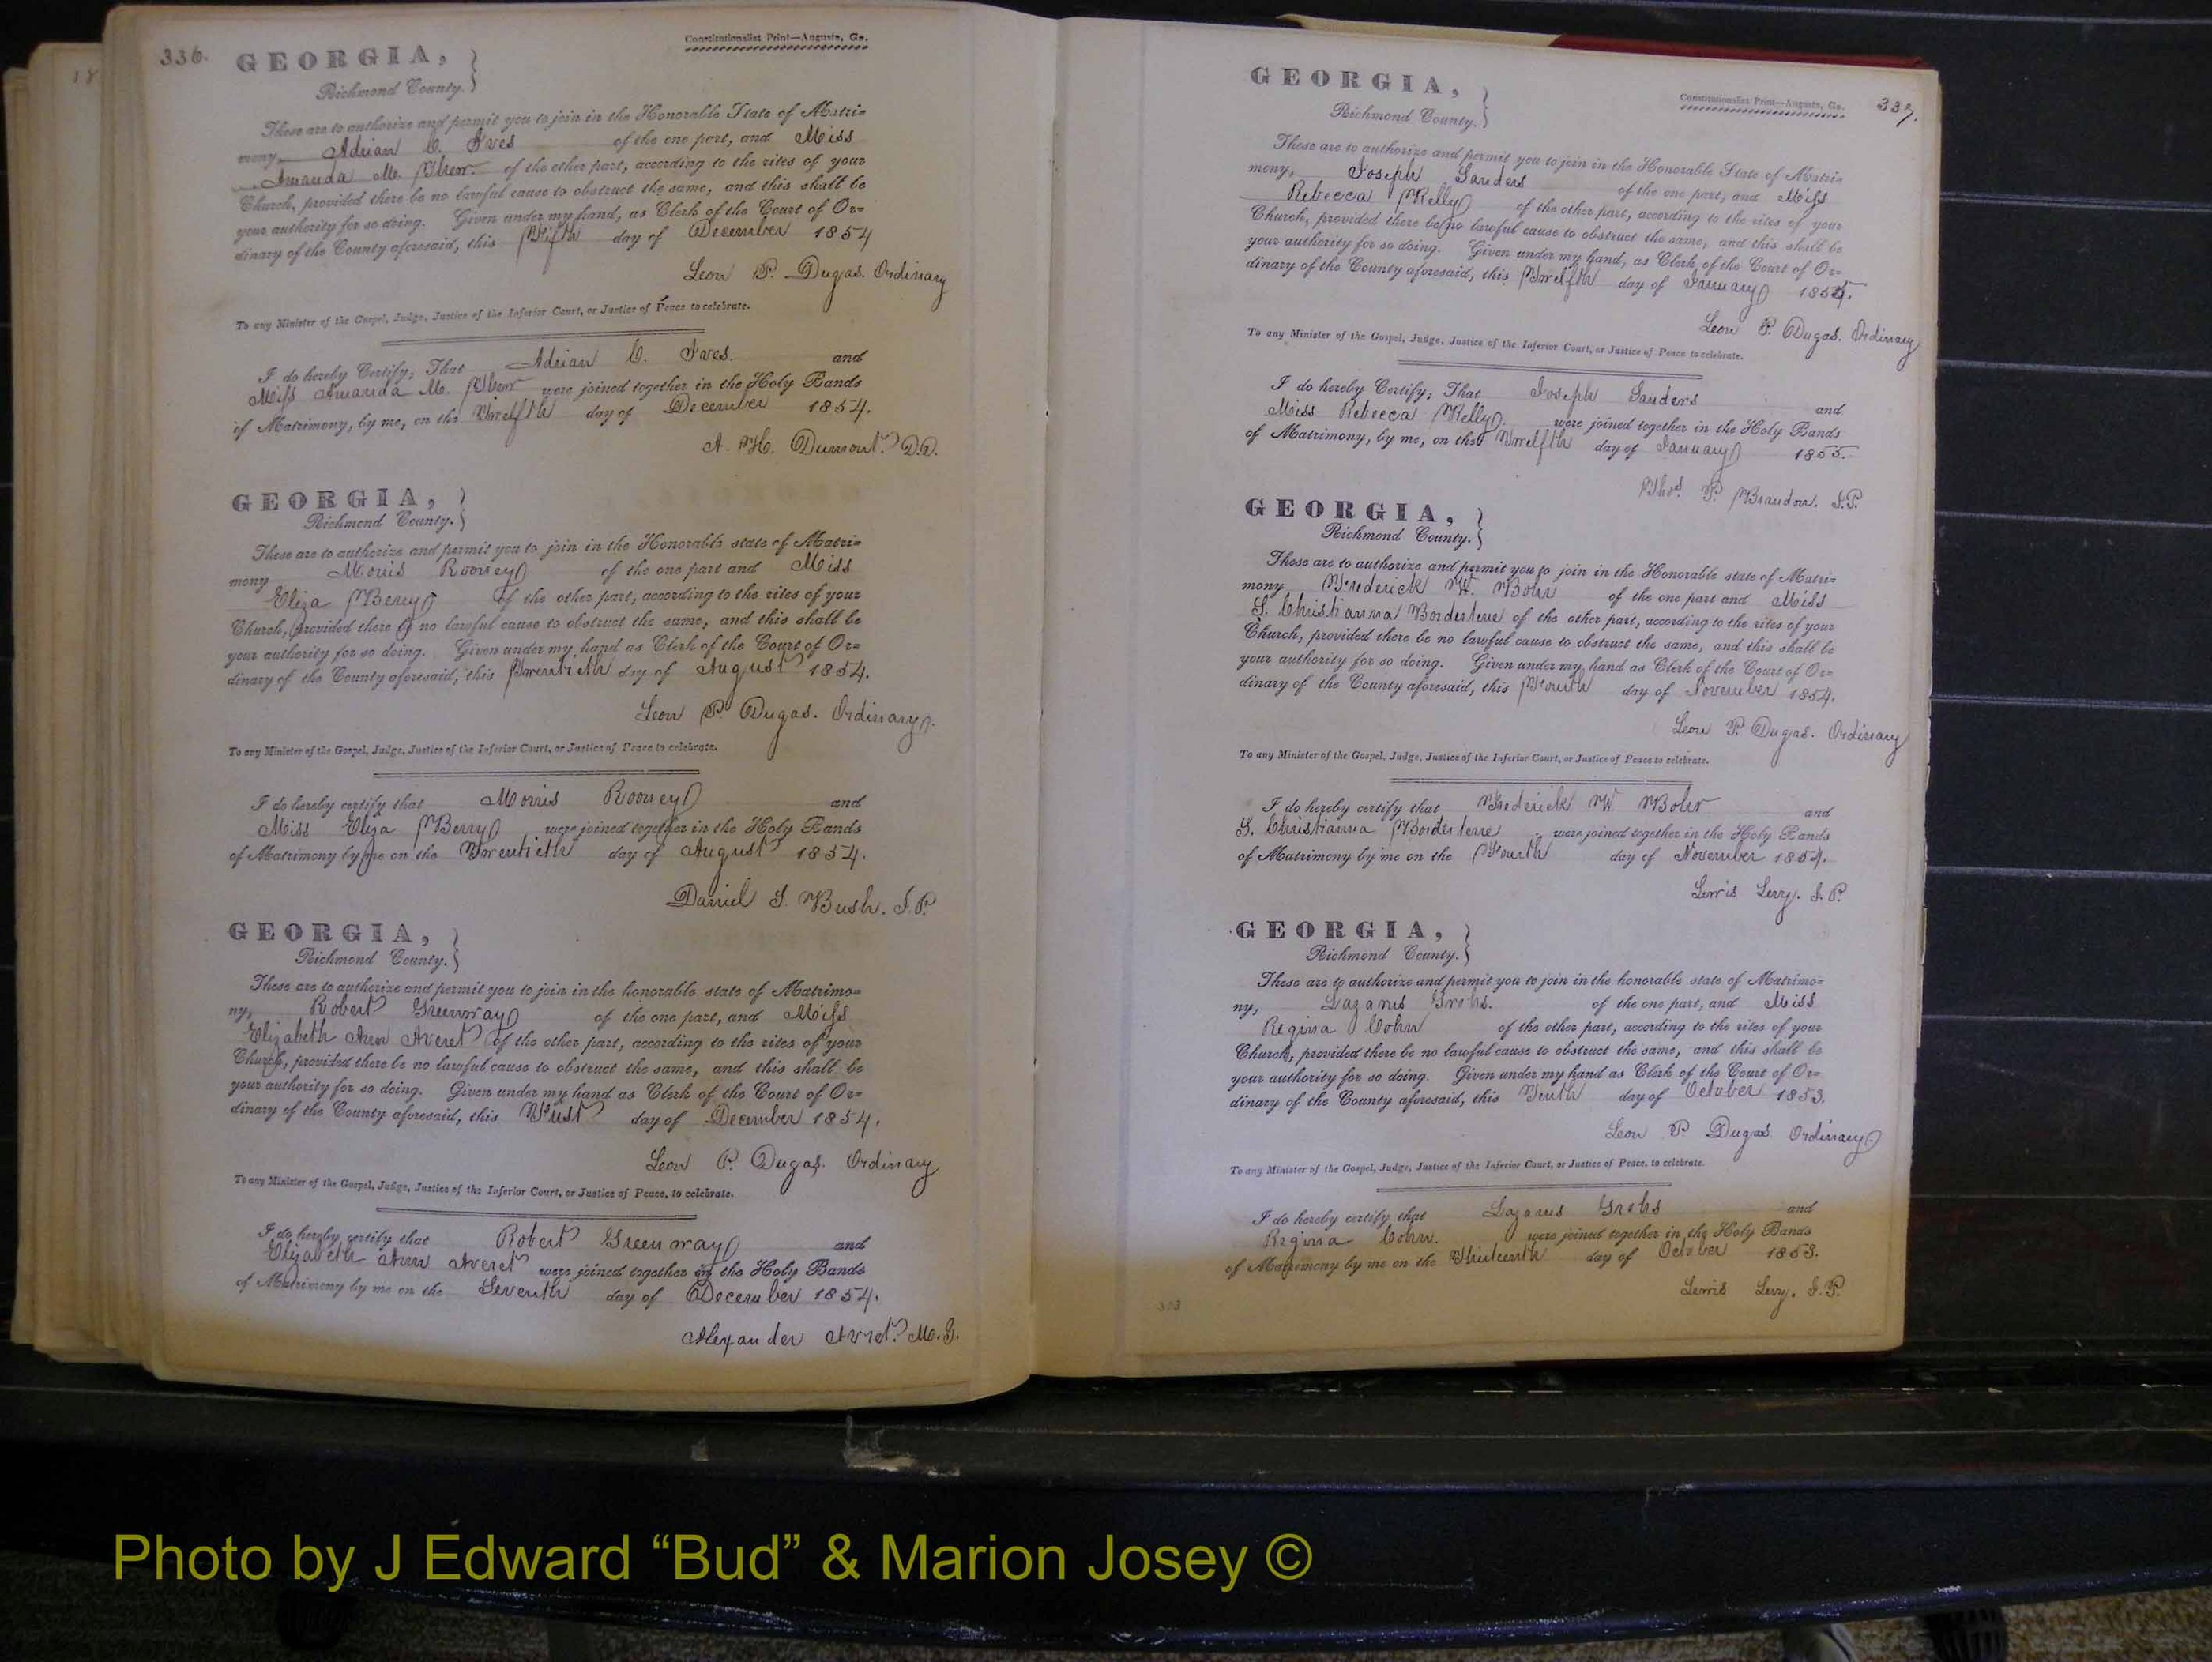 336.
GEORGIA,
Constitutionalist Print—Augusta, Ga.
Richmond County.
These are to authorize and permit you to join in the Honorable State of Matri=
mony, Adrian C. Ives of the one part, and Miss
Amanda M. of the other part, according to the rites of your
Church, provided there be no lawful cause to obstruct the same, and this shall be
your authority for so doing. Given under my hand, as Clerk of the Court of Or=
dinary of the County aforesaid, this Fifth day of December 1854
Leon P. Dugas. Ordinary
To any Minister of the Gospel, Judge, Justice of the Inferior Court, or Justice of Peace to celebrate.
I do hereby Certify, That Adrian C. Ives. and
Miss Amanda M. were joined together in the Holy Bands
of Matrimony, by me, on the Twelfth day of December 1854.
A. H. Dumont. D.D.
GEORGIA,
Richmond County.
These are to authorize and permit you to join in the Honorable state of Matri=
mony Morris Rooney of the one part and Miss
Eliza Berry of the other part, according to the rites of your
Church, provided there be no lawful cause to obstruct the same, and this shall be
your authority for so doing. Given under my hand as Clerk of the Court of Or=
dinary of the County aforesaid, this Twentieth day of August 1854.
Leon P. Dugas. Ordinary.
To any Minister of the Gospel, Judge, Justice of the Inferior Court, or Justice of Peace to celebrate.
I do hereby certify that Morris Rooney and
Miss Eliza Berry were joined together in the Holy Bands
of Matrimony by me on the Twentieth day of August 1854.
Daniel S. Bush. J.P.
GEORGIA,
Richmond County.
These are to authorize and permit you to join in the honorable state of Matrimo=
ny, Robert Greenway of the one part, and Miss
Elizabeth Ann Averet of the other part, according to the rites of your
Church, provided there be no lawful cause to obstruct the same, and this shall be
your authority for so doing. Given under my hand as Clerk of the Court of Or=
dinary of the County aforesaid, this First day of December 1854.
Leon P. Dugas. Ordinary
To any Minister of the Gospel, Judge, Justice of the Inferior Court, or Justice of Peace, to celebrate.
I do hereby certify that Robert Greenway and
Elizabeth Ann Averet were joined together in the Holy Bands
of Matrimony by me on the Seventh day of December 1854.
Alexander Avret. M.G.
GEORGIA,
Constitutionalist Print—Augusta, Ga.
337.
Richmond County.
These are to authorize and permit you to join in the Honorable State of Matri=
mony, Joseph Sanders of the one part, and Miss
Rebecca Kelly of the other part, according to the rites of your
Church, provided there be no lawful cause to obstruct the same, and this shall be
your authority for so doing. Given under my hand, as Clerk of the Court of Or=
dinary of the County aforesaid, this Twelfth day of January 1855.
Leon P. Dugas. Ordinary
To any Minister of the Gospel, Judge, Justice of the Inferior Court, or Justice of Peace to celebrate.
I do hereby Certify, That Joseph Sanders and
Miss Rebecca Kelly were joined together in the Holy Bands
of Matrimony, by me, on the Twelfth day of January 1855.
Thos. P. Brandon. J.P.
GEORGIA,
Richmond County.
These are to authorize and permit you to join in the Honorable state of Matri=
mony Frederick W. Bohr of the one part and Miss
S. Christianna of the other part, according to the rites of your
Church, provided there be no lawful cause to obstruct the same, and this shall be
your authority for so doing. Given under my hand as Clerk of the Court of Or=
dinary of the County aforesaid, this Fourth day of November 1854.
Leon P. Dugas. Ordinary
To any Minister of the Gospel, Judge, Justice of the Inferior Court, or Justice of Peace to celebrate.
I do hereby certify that Frederick W Bohr and
S. Christianna were joined together in the Holy Bands
of Matrimony by me on the Fourth day of November 1854.
Lewis Levy. J.P.
GEORGIA,
Richmond County.
These are to authorize and permit you to join in the honorable state of Matrimo=
ny, Lazarus of the one part, and Miss
Regina Cohn of the other part, according to the rites of your
Church, provided there be no lawful cause to obstruct the same, and this shall be
your authority for so doing. Given under my hand as Clerk of the Court of Or=
dinary of the County aforesaid, this Tenth day of October 1853.
Leon P Dugas Ordinary
To any Minister of the Gospel, Judge, Justice of the Inferior Court, or Justice of Peace, to celebrate.
I do hereby certify that Lazarus and
Regina Cohn. were joined together in the Holy Bands
of Matrimony by me on the Thirteenth day of October 1853.
Lewis Levy. J.P.
Photo by J Edward “Bud” & Marion Josey ©